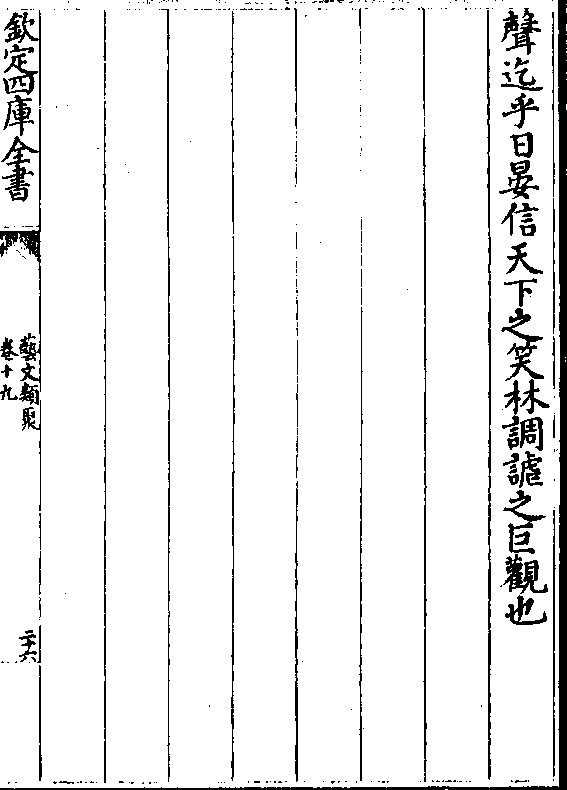 聲迄乎日晏信天下之笑林調謔之巨觀也
欽定四庫全書
藝文類聚
卷十九
二十六